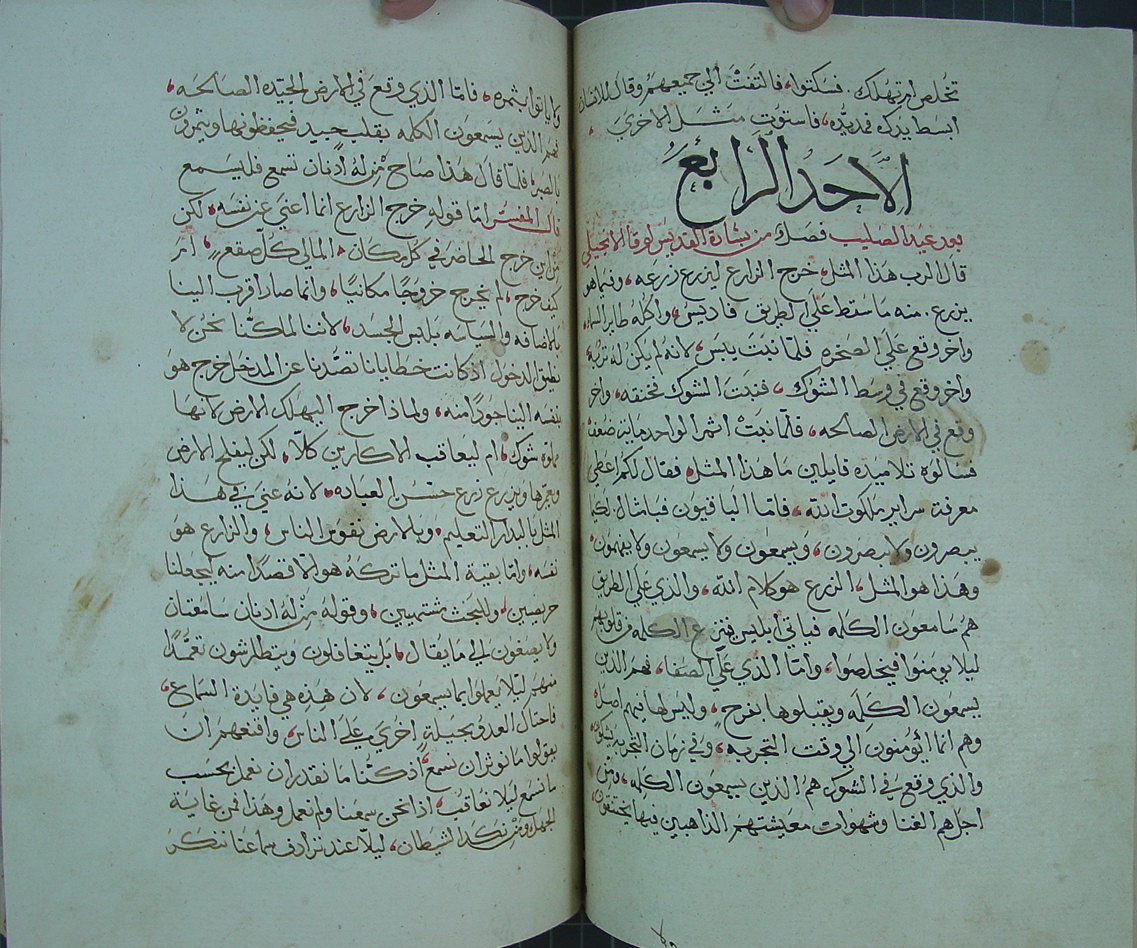 تخلص ام تهلك. فسكتوا، فالتفت الي جميعهم وقال للانسان
ابسط يدك فمد يده، فاستوت مثل الاخري،
الاحد الرابع
بعد عيد الصليب فصل من بشارة القديس لوقا الانجيلي
قال الرب هذا المثل، خرج الزارع ليزرع زرعه، وفيما هو
يزرع. منه ما سقط علي الطريق فاديس، واكله طاير السماء،
واخر وقع علي الصخره فلما نبت يبس، لانه لم يكن له تربه
واخر وقع في وسط الشوك، فنبت الشوك فخنقه، واخر
وقع في الارض الصالحه، فلما نبت اثمر الواحد مايه ضعف
فسالوه تلاميذه قايلين ما هذا المثل، فقال لكم اعطي
معرفة سراير ملكوت الله، فاما الباقيون فبامثال. لكيما
يبصرون ولا يبصرون، ويسمعون ولا يسمعون ولا يفهمون
وهذا هو المثل، الزرع هو كلام الله، والذي علي الطريق
هم سامعون الكلمه فياتي ابليس فينزع الكلمه من قلوبهم
ليلا يومنوا فيخلصوا، واما الذي علي الصفا، فهم الذين
يسمعون الكلمه ويقبلوها بفرح، وليس لها فيهم اصل،
وهم انما ايؤمنون الي وقت التجربه، وفي زمان التجربه يشكون
والذي وقع في الشوك هم الذين يسمعون الكلمه، ومن
اجل هم الغنا وشهوات معيشتهم الذاهبين فيها يختنقون،
ولا ياتوا بثمره، فاما الذي وقع في الارض الجيده الصالحه،
فهم الذين يسمعون الكلمه بقلب جيد فيحفظونها ويثمرون
بالصبر، فلما قال هذا صاح من له اذنان تسمع فليسمع
قال المفسر اما قوله خرج الزارع انما اعني عن نفسه، لكن
من اين خرج الحاضر في كل مكان، المالي كل صقع، ام
كيف خرج، لم يخرج خروجًا مكانيًا، وانما صار اقرب الينا
بالاضافه والسياسه بلبس الجسد، لاننا لما كنا نحن لا
نطيق الدخول اذ كانت خطايانا تصدنا عن المدخل خرج هو
بنفسه الينا جودًا منه، ولماذا خرج اليهلك الارض لانها
مملوه شوك، ام ليعاقب الاكارين كلا، لكن ليفلح الارض
ويعمرها ويزرع زرع حسن العباده، لانه عني في هذا
المثل بالبدار التعليم، وبالارض نفوس الناس، والزارع هو
نفسه، واما بقية المثل ما تركه هولا قصدًا منه ليجعلنا
حريصين، وللبحث مشتهيين، وقوله من له اذنان سامعتان
ولا يصغون الي ما يقال، بل يتغافلون ويتطارشون تعمدًا
منهم ليلا يعملوا بما يسمعون، لان هذه هي فايدة السماع،
فاحتال العدو بحيلةٍ اخري علي الناس، واقنعهم ان
يقولوا ما نوثر ان نسمع، اذ كنا ما نقدر ان نعمل بحسب
ما نسمع ليلا نعاقب، اذا نحن سمعنا ولم نعمل وهذا من غاية
الجهل ومن نكد الشيطان، ليلا عند ترادف سماعنا نتذكر